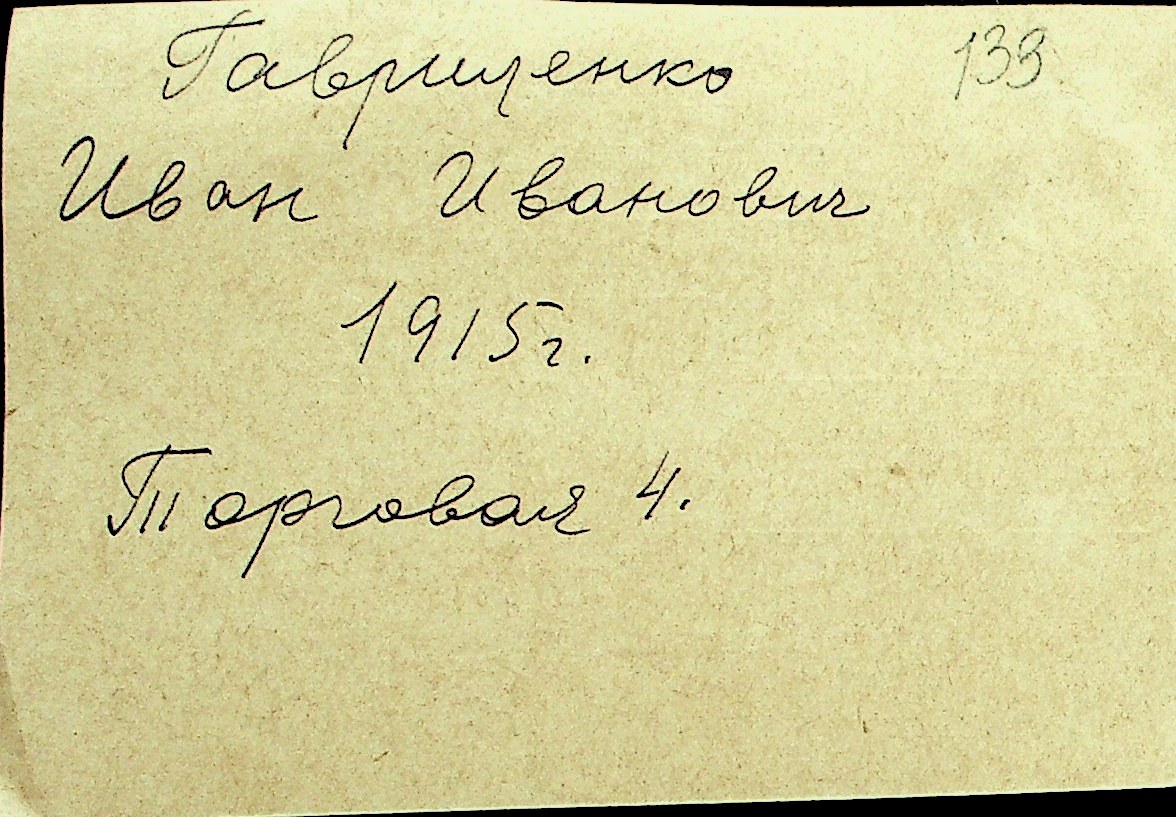 Гавриленко 139
Иван Иванович
1915г.
Торговая 4.